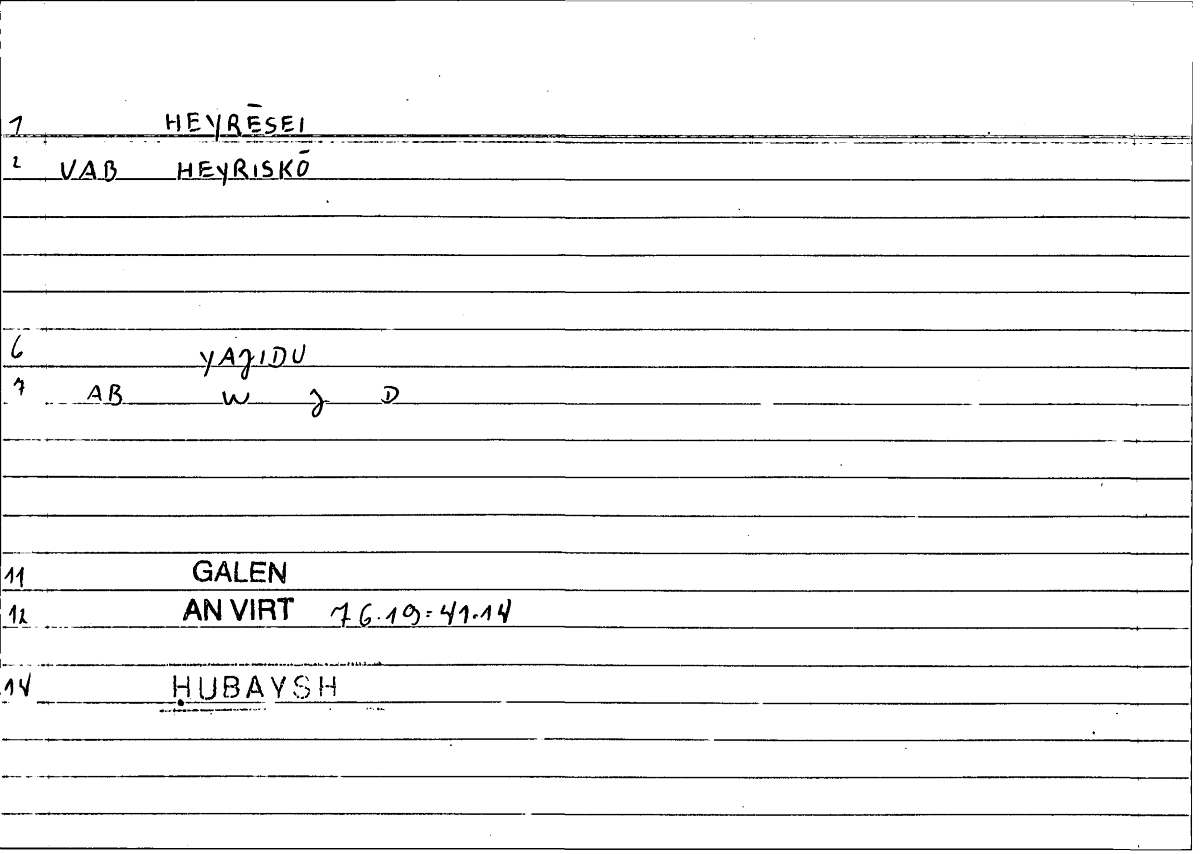 1 HEYRĒSEI
2 VAB HEYRISKŌ
6 YAJIDU
7 AB W J D
11 GALEN
12 AN VIRT 76.19=41.14
14 ḤUBAYSH